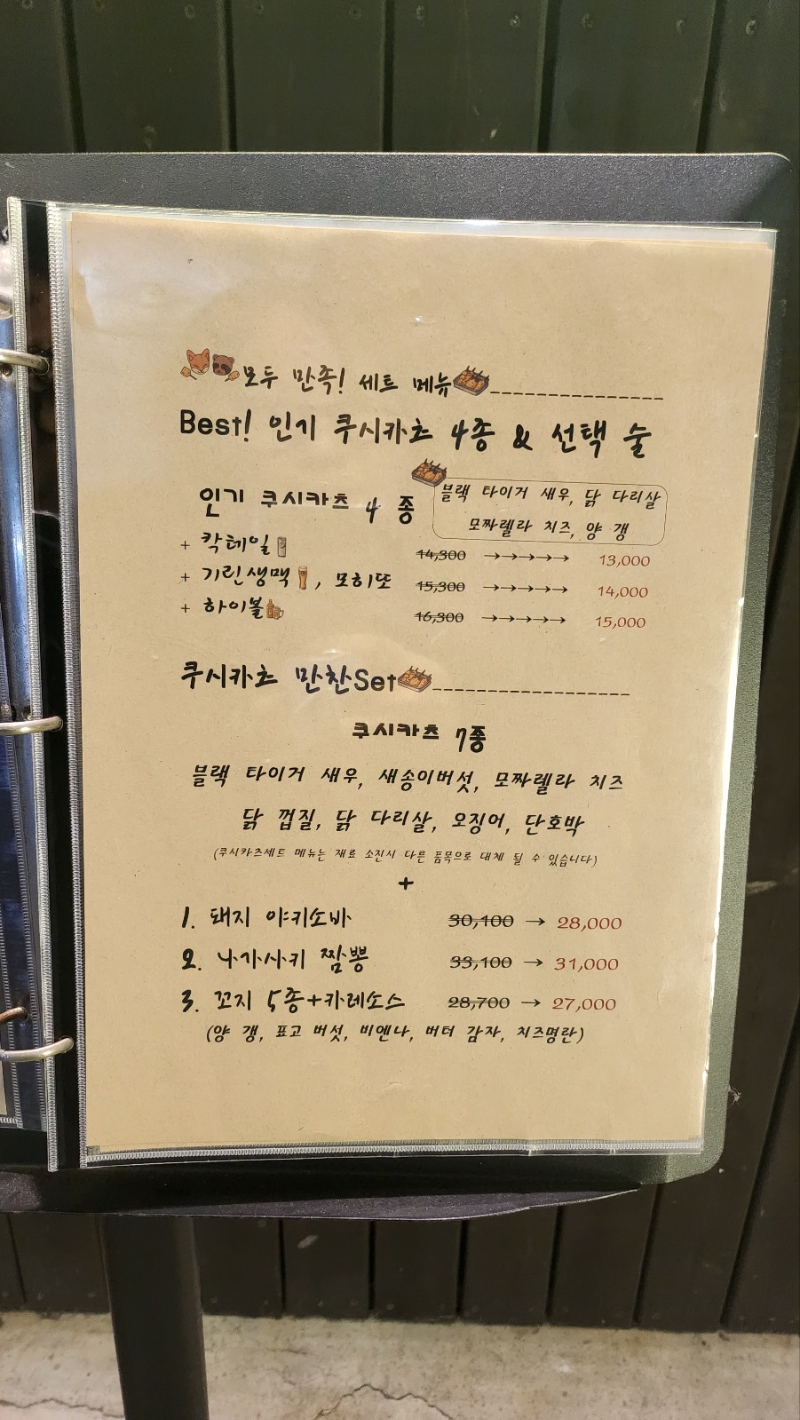 모두 만족! 세트 메뉴______________
Best! 인기 쿠시카츠 4종 & 선택 술
인기 쿠시카츠 4 종
블랙 타이거 새우, 닭 다리살
모짜렐라 치즈, 양 갱
+ 칵테일 14,300 →→→→→ 13,000
+ 기린생맥, 모히또 15,300 →→→→→ 14,000
+ 하이볼 16,300 →→→→→ 15,000
쿠시카츠 만찬Set________________
쿠시카츠 7종
블랙 타이거 새우, 새송이버섯, 모짜렐라 치즈
닭 껍질, 닭 다리살, 오징어, 단호박
(쿠시카츠세트 메뉴는 재료 소진시 다른 품목으로 대체 될 수 있습니다)
+
1. 돼지 야키소바 30,100 → 28,000
2. 나가사키 짬뽕 33,100 → 31,000
3. 꼬지 5종+카레소스 28,700 → 27,000
(양 갱, 표고 버섯, 비엔나, 버터 감자, 치즈명란)